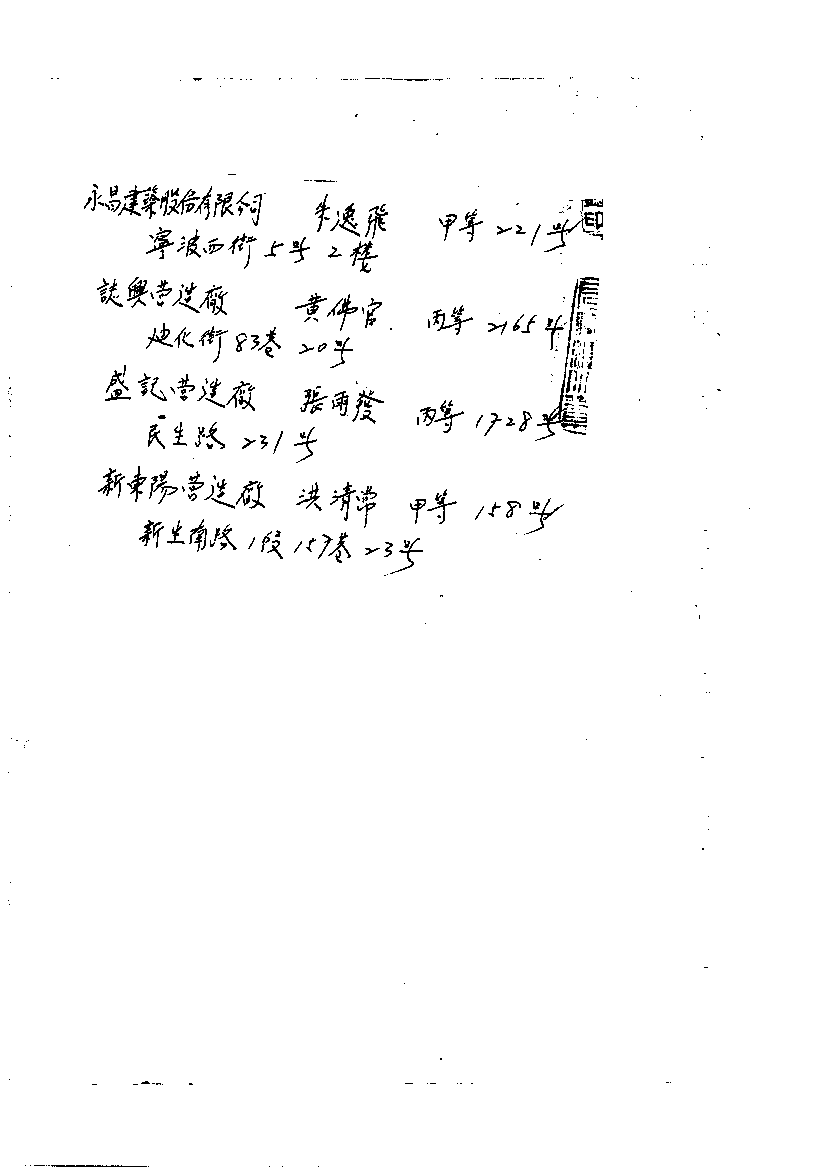 永昌建築股份有限公司 朱逸飛 甲等221号
寧波西街5号2楼
誌興营造廠 黄佛官 丙等2165号
迪化街83巷20号
盛記营造廠 張雨發 丙等1728号
民生路231号
新東陽营造廠 洪清常 甲等158号
新生南路1段157巷23号
印